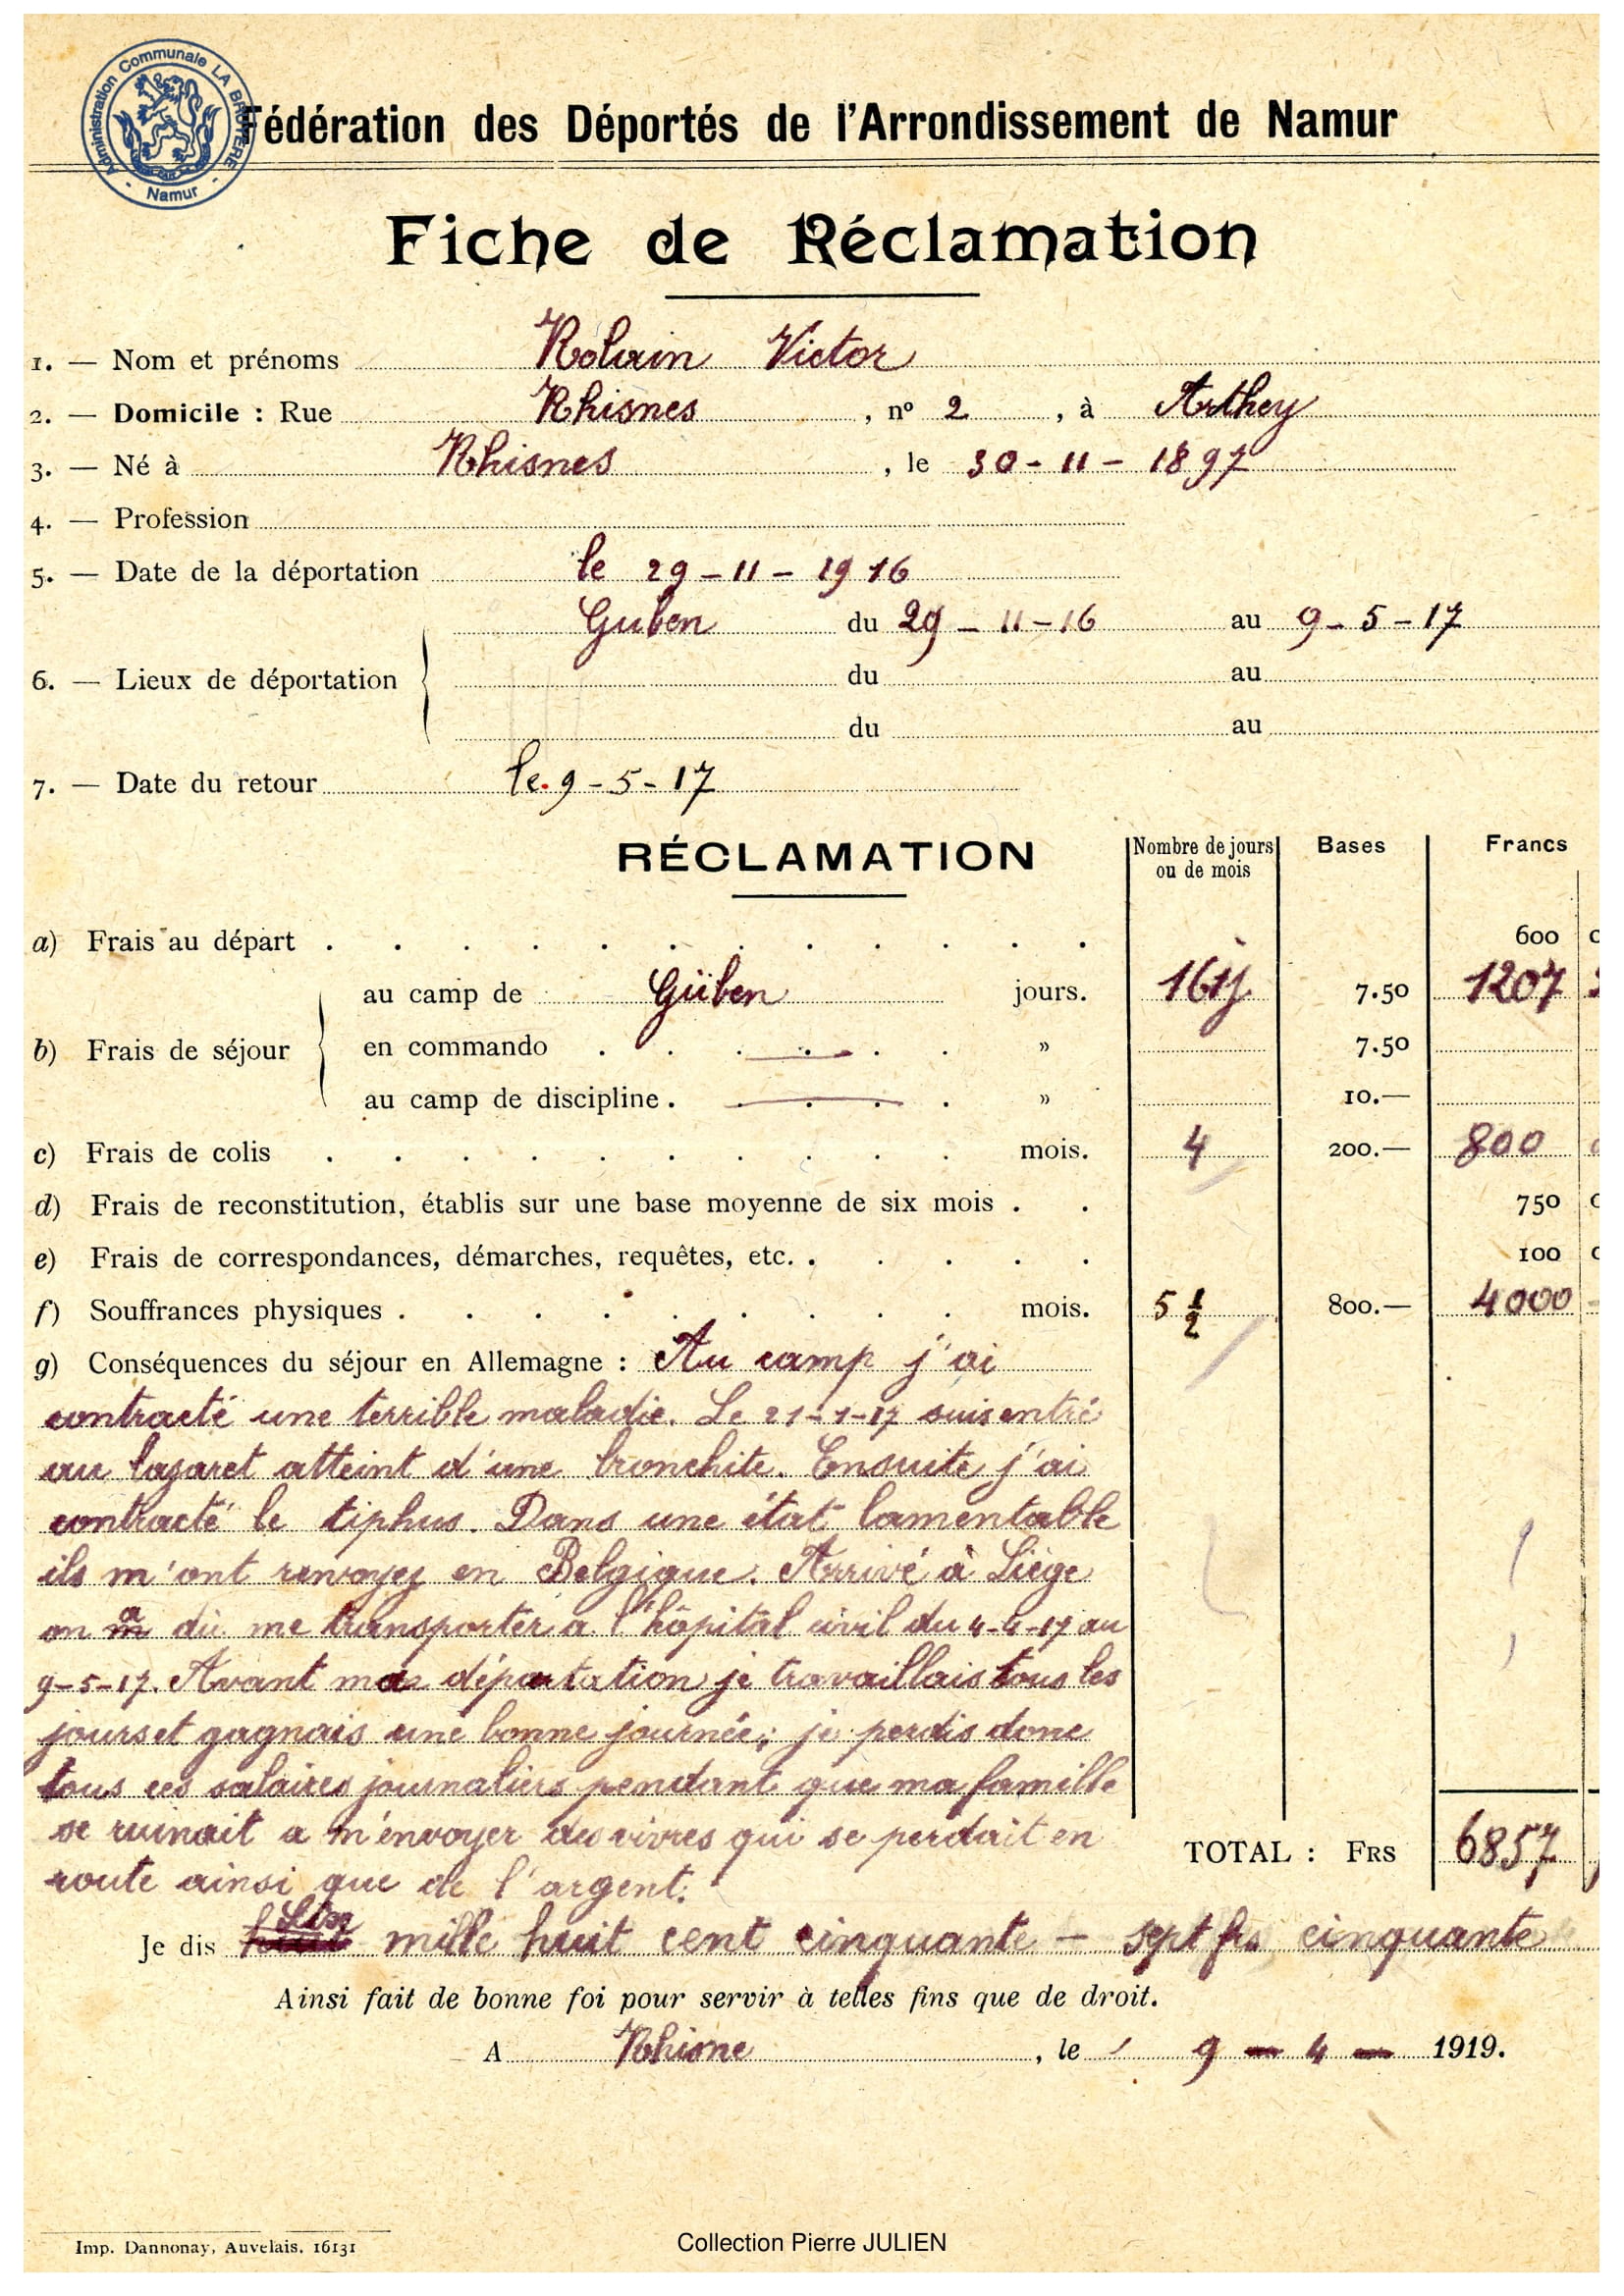 Administration Communale LA BRUYERE
- Namur -
Fédération des Déportés de l'Arrondissement de Namur
Fiche de Réclamation
1. — Nom et prénoms Rolain Victor
2. — Domicile : Rue Rhisnes , nº 2 , à Arthey
3. — Né à Rhisnes , le 30-11-1897
4. — Profession
5. — Date de la déportation le 29-11-1916
Guben du 29-11-16 au 9-5-17
6. — Lieux de déportation du au
du au
7. — Date du retour le 9-5-17
RÉCLAMATION Nombre de jours ou de mois Bases Francs
a) Frais au départ . . . . . . . . . . . . 600
au camp de Güben jours. 161j 7.50 1207
b) Frais de séjour en commando . . . . . . » 7.50
au camp de discipline . . . . . » 10.—
c) Frais de colis . . . . . . . . . . mois. 4 200.— 800
d) Frais de reconstitution, établis sur une base moyenne de six mois . . 750
e) Frais de correspondances, démarches, requêtes, etc. . . . . . 100
f) Souffrances physiques . . . . . . . . . mois. 5 1/2 800.— 4000
g) Conséquences du séjour en Allemagne : Au camp j'ai
contracté une terrible maladie. Le 21-1-17 suis entré
au lazaret atteint d'une bronchite. Ensuite j'ai
contracté le tiphus. Dans une état lamentable
ils m'ont renvoyez en Belgique. Arrivé à Liège
on a dû me transporter a l'hôpital civil du 4-4-17 au
9-5-17. Avant ma déportation je travaillais tous les
jours et gagnais une bonne journée; je perdis donc
tous ces salaires journaliers pendant que ma famille
se ruinait a m'envoyer des vivres qui se perdait en
route ainsi que de l'argent.
TOTAL : FRS 6857
Je dis Six mille huit cent cinquante - sept frs cinquante
Ainsi fait de bonne foi pour servir à telles fins que de droit.
A Rhisne , le 9 - 4 - 1919.
Imp. Dannonay, Auvelais. 16131
Collection Pierre JULIEN